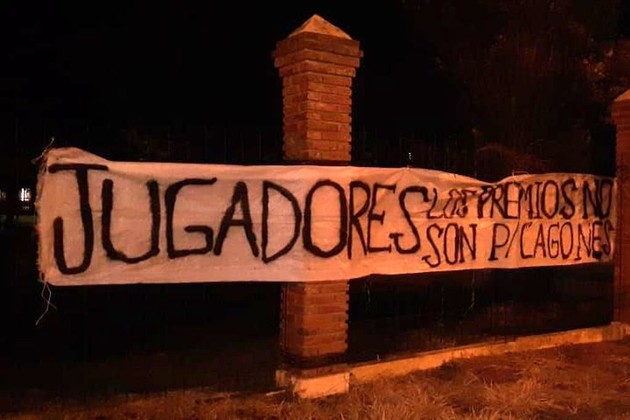 JUGADORES
LOS PREMIOS NO
SON P/CAGONES